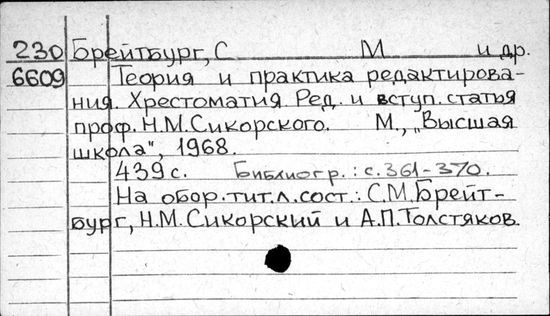 230 Брейтбург, С М и др.
6609 Теория и практика редактирова-
ния. Хрестоматия Ред. и вступ. статья
проф. Н.М.Сикорского. М., „Высшая
школа", 1968.
439 с. Библиогр.: с. 361-370.
На обор. тит. л. сост.: С.М.Брейт-
бург, Н.М.Сикорский и А.П.Толстяков.